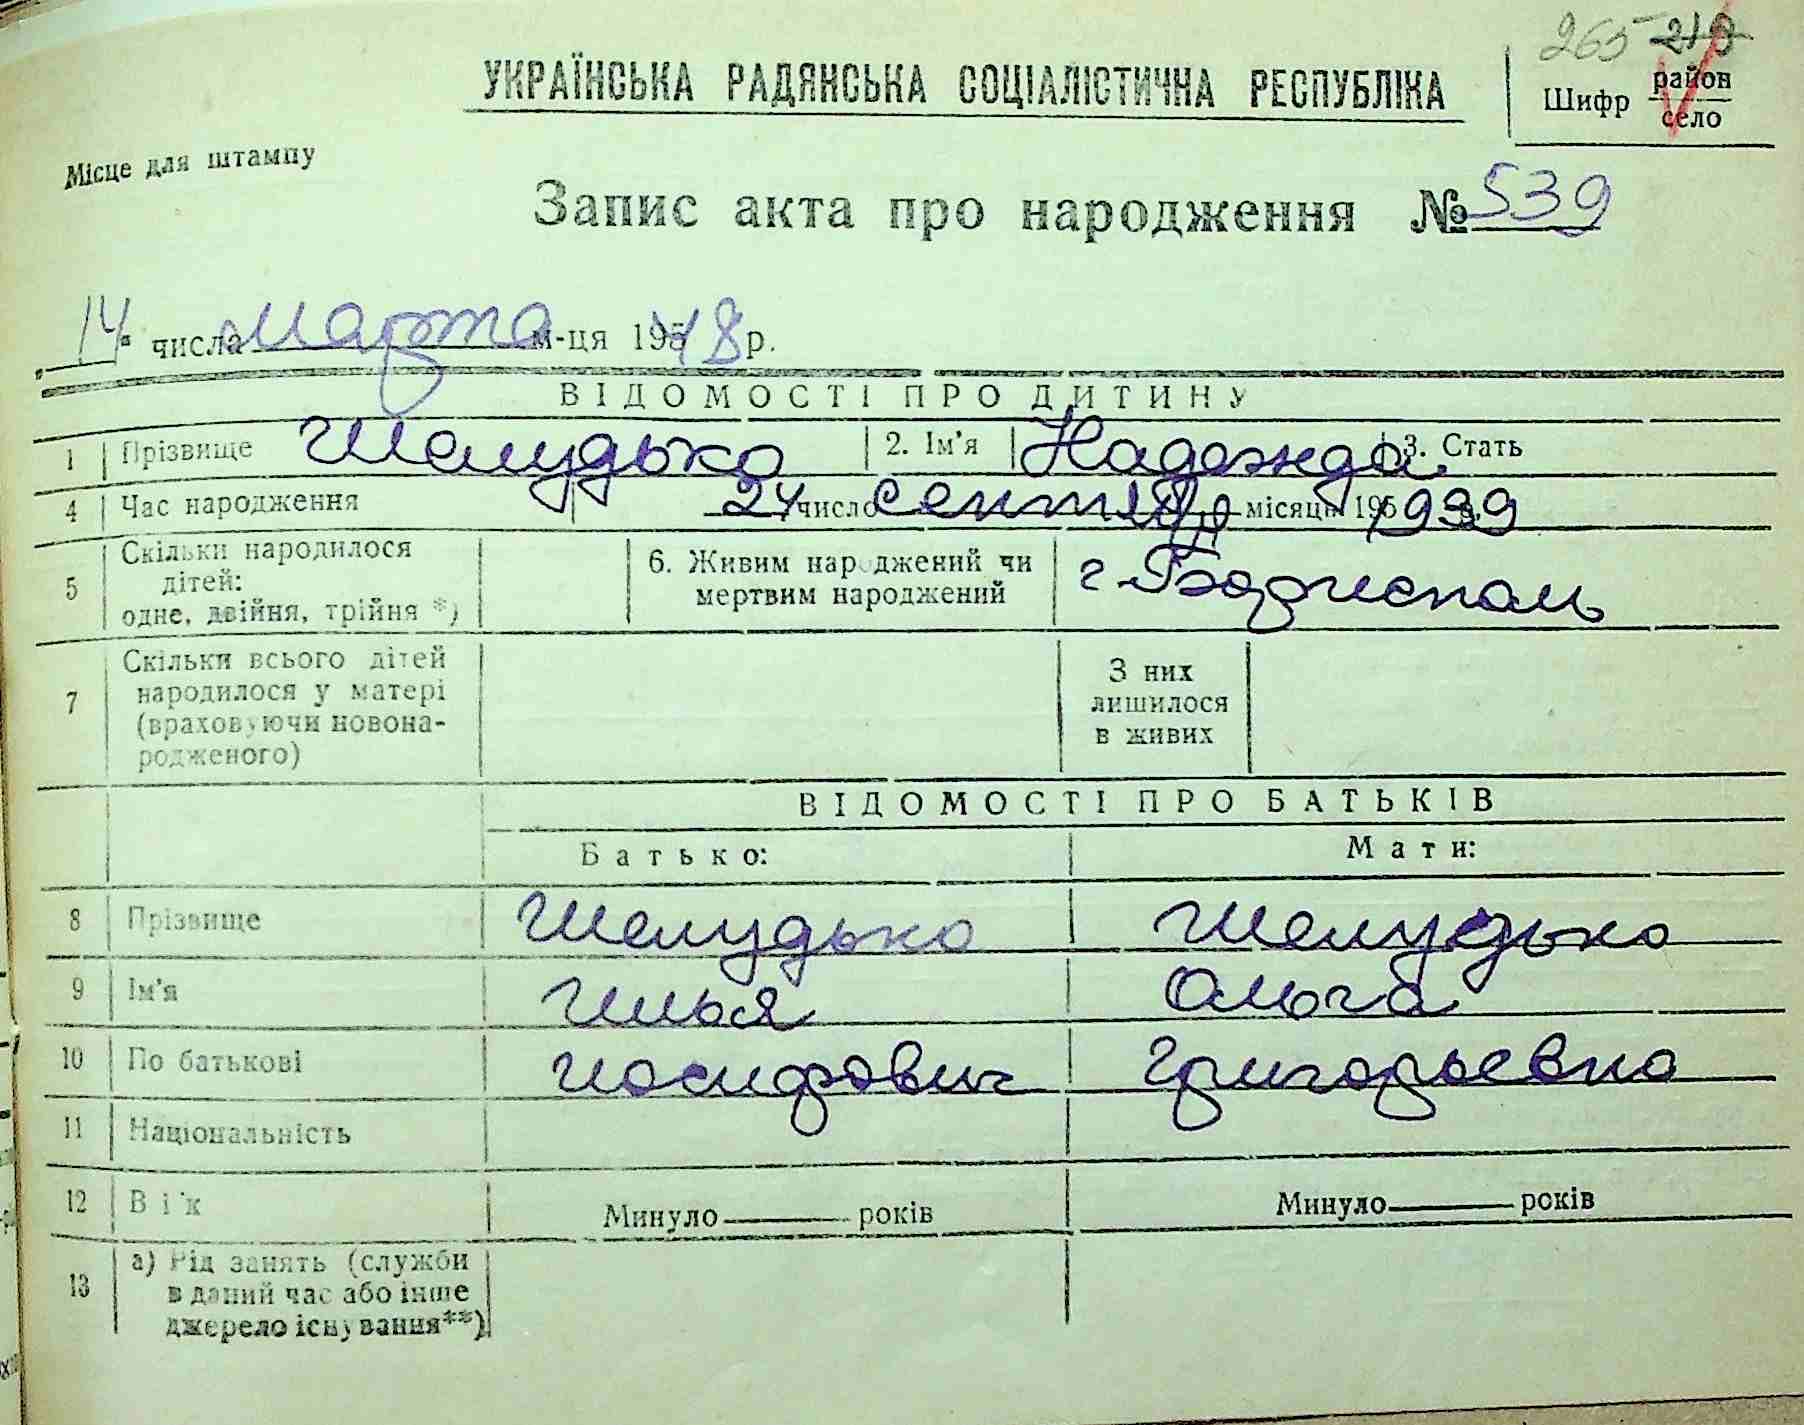 265 219
УКРАЇНСЬКА РАДЯНСЬКА СОЦІАЛІСТИЧНА РЕСПУБЛІКА
Шифр район
село
Місце для штампу
Запис акта про народження № 539
14 числа марта м-ця 195 48 р.
ВІДОМОСТІ ПРО ДИТИНУ
1 Прізвище Шелудько 2. Ім'я Надежда 3. Стать
4 Час народження 24 число сентября місяця 195 1939
5 Скільки народилося дітей: одне, двійня, трійня *)
6. Живим народжений чи мертвим народжений
г Борисполь
7 Скільки всього дітей народилося у матері (враховуючи новонародженого)
З них лишилося в живих
ВІДОМОСТІ ПРО БАТЬКІВ
Батько: Мати:
8 Прізвище Шелудько Шелудько
9 Ім'я Илья Ольга
10 По батькові Иосифович Григорьевна
11 Національність
12 Вік Минуло років Минуло років
13 а) Рід занять (служби
в даний час або інше
джерело існування**)